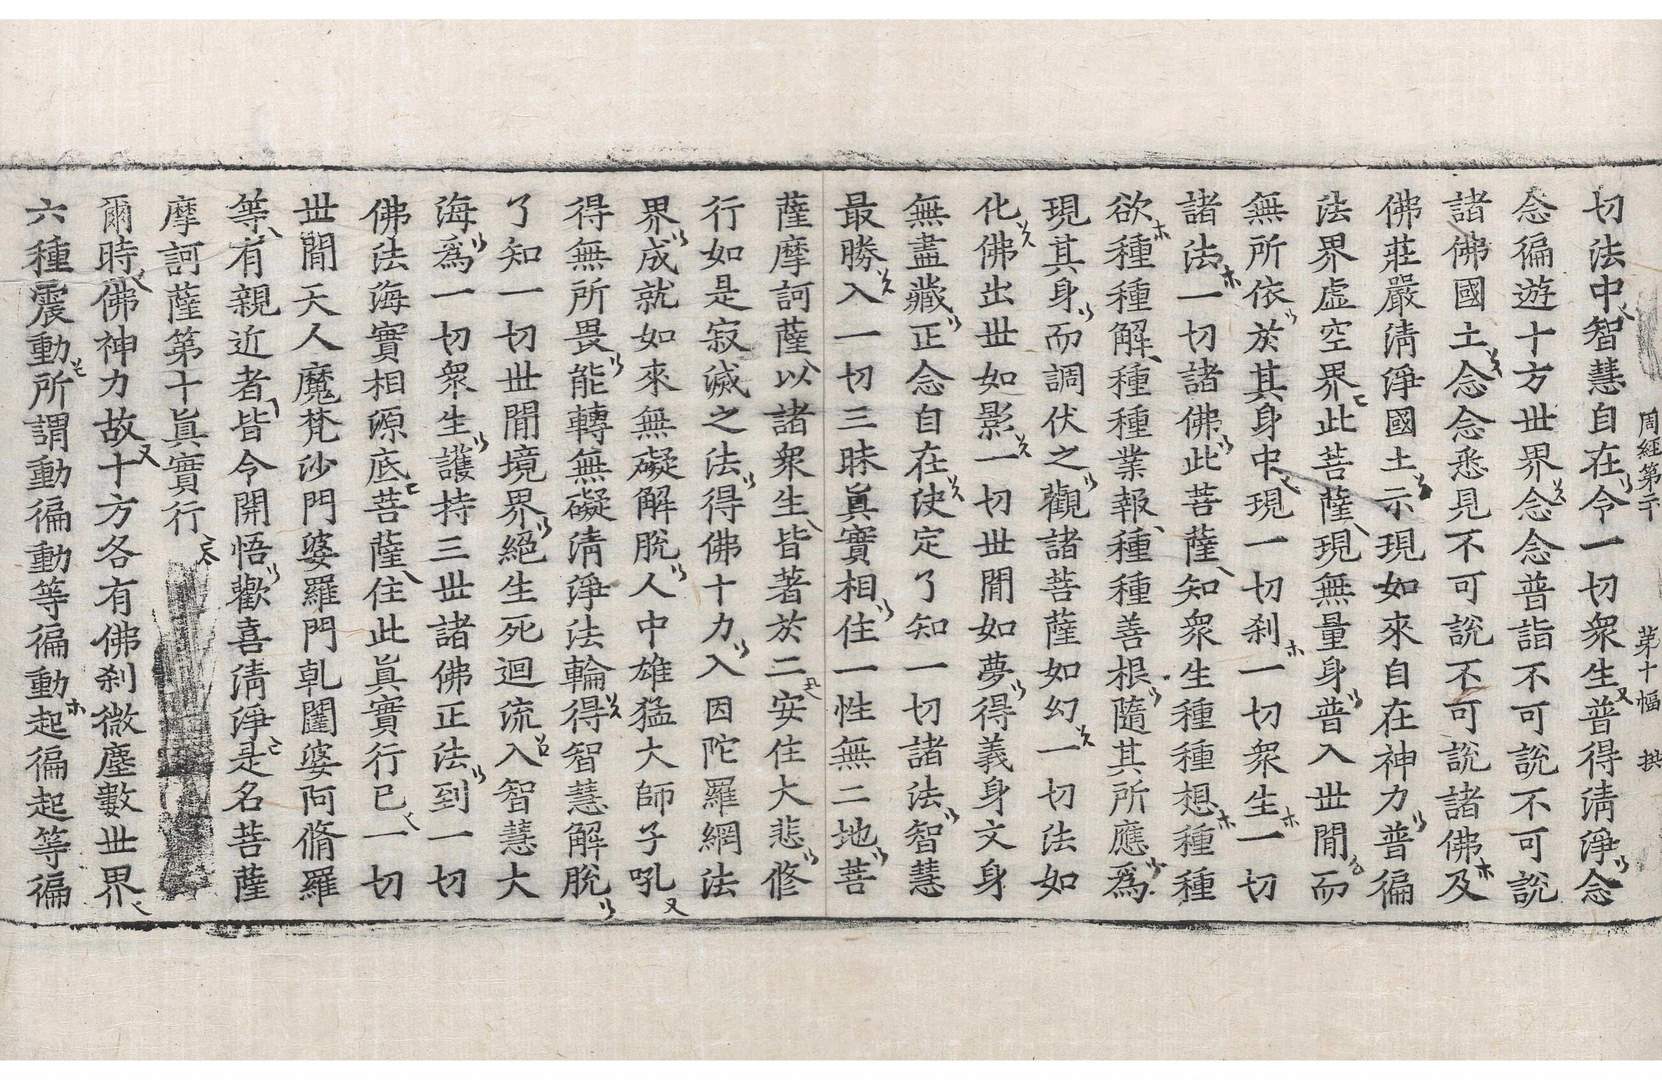 周經第二十 第十幅 拱
切法中智慧自在令一切衆生普得淸淨念
念徧遊十方世界念念普詣不可說不可說
諸佛國土念念悉見不可說不可說諸佛及
佛莊嚴淸淨國土示現如來自在神力普徧
法界虛空界此菩薩現無量身普入世間而
無所依於其身中現一切刹一切衆生一切
諸法一切諸佛此菩薩知衆生種種想種種
欲種種解種種業報種種善根隨其所應爲
現其身而調伏之觀諸菩薩如幻一切法如
化佛出世如影一切世間如夢得義身文身
無盡藏正念自在決定了知一切諸法智慧
最勝入一切三昧眞實相住一性無二地菩
薩摩訶薩以諸衆生皆著於二安住大悲修
行如是寂滅之法得佛十力入因陀羅網法
界成就如來無礙解脫人中雄猛大師子吼
得無所畏能轉無礙淸淨法輪得智慧解脫
了知一切世間境界絕生死迴流入智慧大
海爲一切衆生護持三世諸佛正法到一切
佛法海實相源底菩薩住此眞實行已一切
世間天人魔梵沙門婆羅門乹闥婆阿脩羅
等有親近者皆令開悟歡喜淸淨是名菩薩
摩訶薩第十眞實行
爾時佛神力故十方各有佛刹微塵數世界
六種震動所謂動徧動等徧動起徧起等徧